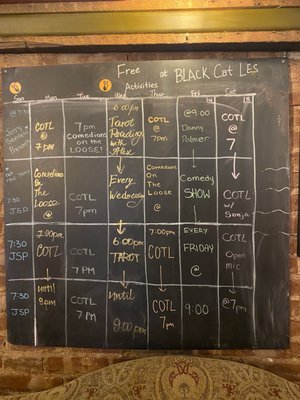 Free at BLACK Cat LES
Activities
Sun Mon Tue Wed Thur Fri Sat
14 15
@7:30
Jerry
Seinfeld
Presents
COTL
@
7pm
7pm
Comedians
ON THE
LOOSE!
6:00pm
Tarot
Readings
with
COTL
@
7pm
@9:00
Danny
Palmer
COTL
@
7
7:30
JSP
Comedians
On
The
Loose
@
COTL
7pm
Every
Wednesday
Comedians
On
The
Loose
@
Comedy
SHOW
COTL
w/
Sonja
7:30
JSP
7:00pm
COTL
COTL
7 PM
6:00pm
TAROT
7:00pm
COTL
EVERY
FRIDAY
@
COTL
Open
Mic
7:30
JSP
until
9pm
COTL
7 PM
until
9:00pm
COTL
7pm
9:00
@7pm